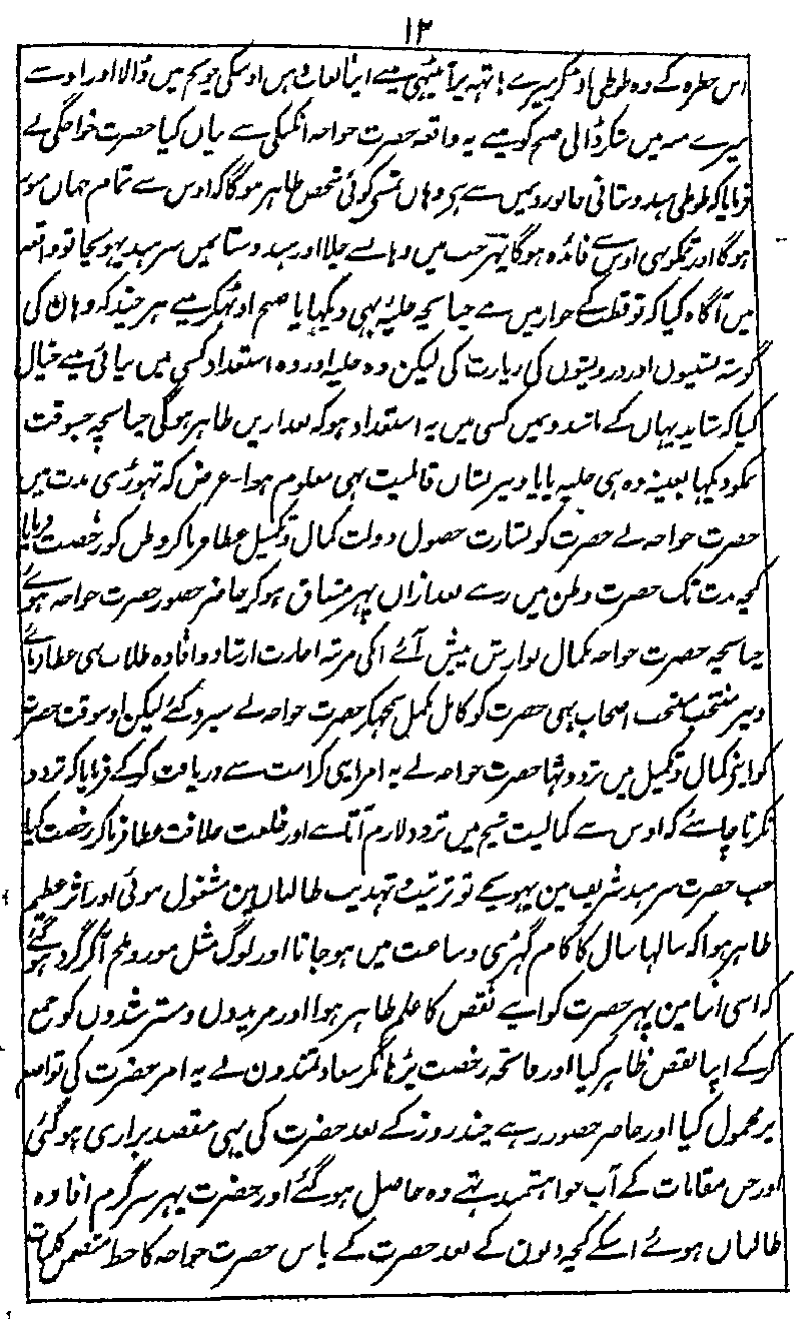 ۱۲
اس خطرہ کے وہ طوطی اوڑکر میرے ہاتہہ پر آ بیٹھی مینے اپنا لعاب دہن اوسکی چونچ میں ڈالا اور اوسنے
میرے منہ میں شکر ڈالی صبح کو مینے یہ واقعہ حضرت خواجہ امکنگی سے بیاں کیا حضرت خواجگی نے
فرمایا کہ طوطی ہندوستانی جانور ہے وہاں کوئی شخص ظاہر ہوگا کہ اوس سے تمام جہاں منور
ہوگا اور تمکو بہی اوس سے فائدہ ہوگا پہر جب میں وہاں سے چلا اور ہندوستاں میں سرہند پہونچا تو واقعہ
میں آگاہ کیا کہ تو قطب کے جوار میں ہے چنانچہ حلیہ بہی دیکہایا صبح اوٹہکر مینے ہر چند کہ وہاں کی
گوشہ نشینوں اور درویشوں کی زیارت کی لیکن وہ حلیہ اور وہ استعداد کسی میں نپائی مینے خیال
کیا کہ شاید یہاں کے باشندوں میں کسی میں یہ استعداد ہو کہ بعد ازیں ظاہر ہوگی چنانچہ جسوقت
تمکو دیکہا بعینہ وہ ہی حلیہ پایا و نیز نشاں قابلیت بہی معلوم ہوا۔ غرض کہ تہوڑی مدت میں
حضرت خواجہ نے حضرت کو بشارت حصول دولت کمال و تکمیل عطا فرما کر وطن کو رخصت فرمایا
کچہ مدت تک حضرت وطن میں رہے بعد ازاں پہر مشتاق ہوکر حاضر حضور حضرت خواجہ ہوئے
چنانچہ حضرت خواجہ بکمال نوازش پیش آئے ابکی مرتبہ اجازت ارشاد و افادہ طلاب بہی عطا فرمائی
و نیز منتخب منتخب اصحاب بہی حضرت کو کامل مکمل سمجہکر حضرت خواجہ نے سپرد کئے لیکن اوسوقت حضرت
کو اپنی کمال و تکمیل میں تردد تہا حضرت خواجہ نے یہ امر اپنی کرامت سے دریافت کرکے فرمایا کہ تردد
نکرنا چاہئے کہ اوس سے کمالیت شیخ میں تردد لازم آتا ہے اور خلعت خلافت عطا فرما کر رخصت کیا
جب حضرت سرہند شریف میں پہونچے تو تربیت و تہذیب طالباں میں مشغول ہوئی اور اثر عظیم
ظاہر ہوا کہ سالہا سال کا کام گہڑی و ساعت میں ہو جاتا اور لوگ مثل مور و ملخ آکر گرد ہو گئے
کہ اسی اثنا میں پہر حضرت کو اپنے نقص کا علم ظاہر ہوا اور مریدوں و مسترشدوں کو جمع
کرکے اپنا نقص ظاہر کیا اور فاتحہ رخصت پڑہا مگر سعادتمندوں نے یہ امر حضرت کی تواضع
پر محمول کیا اور حاضر حضور رہے چند روز کے بعد حضرت کی بہی مقصد براری ہوگئی
اور جس مقامات کے آپ خواہشمند تہے وہ حاصل ہو گئے اور حضرت پہر سرگرم افادہ
طالباں ہوئے اسکے کچہ دنوں کے بعد حضرت کے پاس حضرت خواجہ کا خط متضمن کلمات